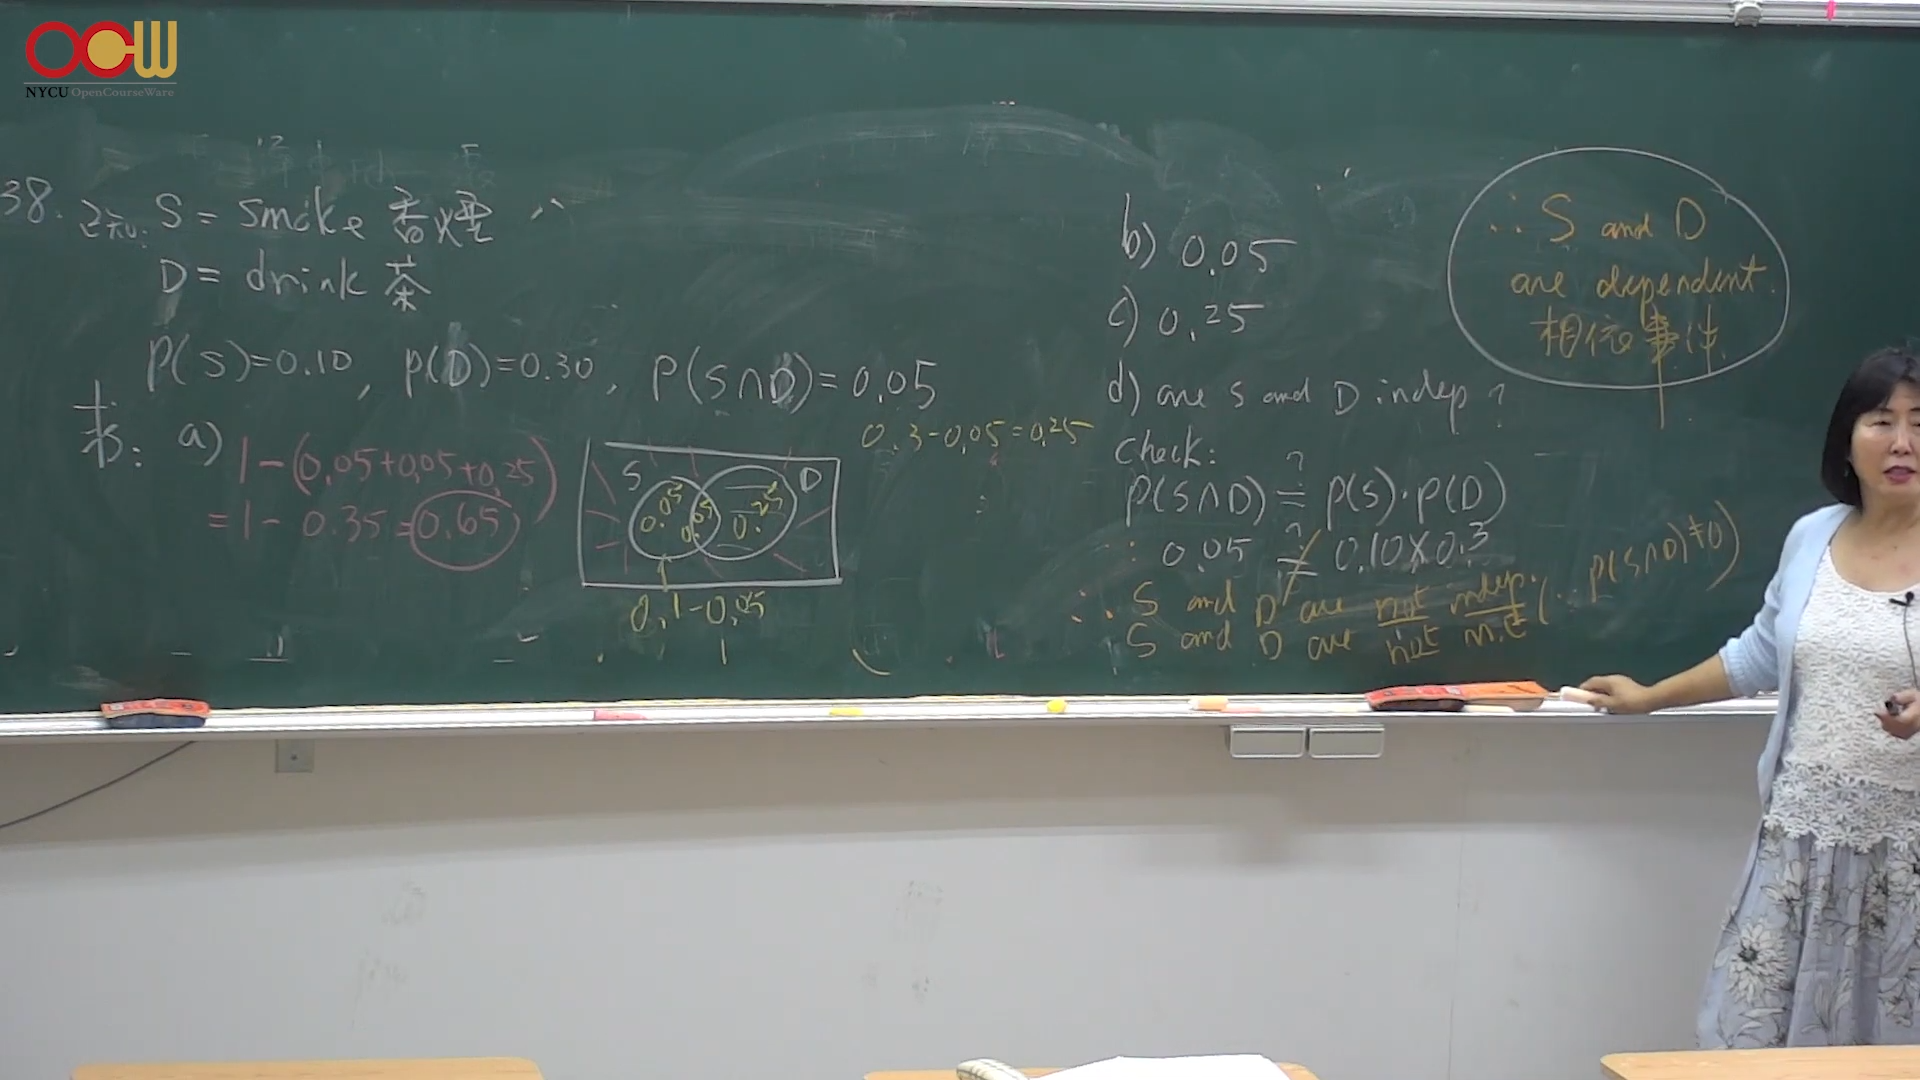 OCW
NYCU OpenCourseWare
38. 已知: S = smoke 香煙
D = drink 茶
P(S)=0.10, P(D)=0.30, P(S∩D)=0.05
求: a) 1-(0.05+0.05+0.25)
=1-0.35=0.65
S D
0.05 0.05 0.25
0.1-0.05
0.3-0.05=0.25
b) 0.05
c) 0.25
d) are S and D indep?
check:
P(S∩D) ≟ P(S)·P(D)
0.05 ≠ 0.10×0.3
∴ S and D are not indep.
S and D are not m.e (∵ P(S∩D)≠0)
∴ S and D
are dependent.
相依事件